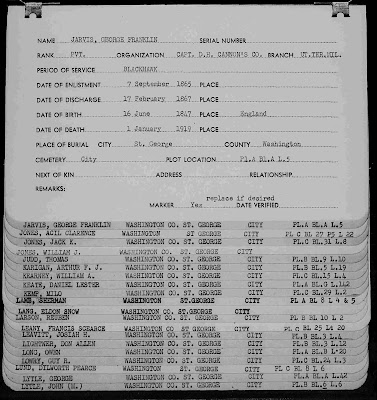 NAME JARVIS, GEORGE FRANKLIN SERIAL NUMBER
RANK PVT. ORGANIZATION CAPT. D.H. CANNON'S CO. BRANCH UT.TER.MIL.
PERIOD OF SERVICE BLACKHAWK
DATE OF ENLISTMENT 7 September 1865 PLACE
DATE OF DISCHARGE 17 February 1867 PLACE
DATE OF BIRTH 16 June 1847 PLACE England
DATE OF DEATH 1 January 1919 PLACE
PLACE OF BURIAL CITY St. George COUNTY Washington
CEMETERY City PLOT LOCATION Pl.A Bl.A L.5
NEXT OF KIN ADDRESS RELATIONSHIP
REMARKS:
replace if desired
MARKER Yes DATE VERIFIED
JARVIS, GEORGE FRANKLIN WASHINGTON CO. ST. GEORGE CITY PL.A BL.A L.5
JONES, ACIL CLARENCE WASHINGTON ST GEORGE CITY PL C BL 27 P5 L 22
JONES, JACK K. WASHINGTON CO. ST. GEORGE CITY PL.C BL.31 L.8
JONES, WILLIAM J. WASHINGTON CO. ST. GEORGE CITY
JUDD, THOMAS WASHINGTON CO. ST. GEORGE CITY PL.B BL.9 L.10
KARIGAN, ARTHUR F. J. WASHINGTON CO. ST. GEORGE CITY PL.B BL.5 L.19
KEARNEY, WILLIAM A. WASHINGTON CO. ST. GEORGE CITY PL.C BL.15 L.4
KEATE, DANIEL LESTER WASHINGTON CO. ST. GEORGE CITY PL.A BL.C
KEMP, MILO WASHINGTON CO. ST. GEORGE CITY PL.C BL.29 L.2
LAMB, SHERMAN WASHINGTON ST.GEORGE CITY PL A BL 8 L 4 & 5
LANG, ELDON SNOW WASHINGTON CO. ST.GEORGE CITY
LARSON, REUBEN WASHINGTON CO. ST. GEORGE CITY PL B BL 10 L 2
LEANY, FRANCIS SCEARCE WASHINGTON CO. ST. GEORGE CITY PL C BL 25 L4 20
LEAVITT, JOSIAH H. WASHINGTON CO. ST. GEORGE CITY PL.B BL.3 L.4
LIGHTNER, DON ALLEN WASHINGTON CO. ST. GEORGE CITY PL.B BL.3 L.12
LONG, OWEN WASHINGTON CO. ST. GEORGE CITY PL.A BL.B
LOWRY, GUY H. WASHINGTON CO. ST. GEORGE CITY PL.C BL.24 L.3
LUND, DILWORTH PEARCE WASHINGTON CO. ST. GEORGE CITY PL C BL 8 L 6
LYTLE, GEORGE WASHINGTON CO. ST. GEORGE CITY PL.A BL.A
LYTLE, JOHN (M.) WASHINGTON CO. ST. GEORGE CITY PL.B BL.6 L.6